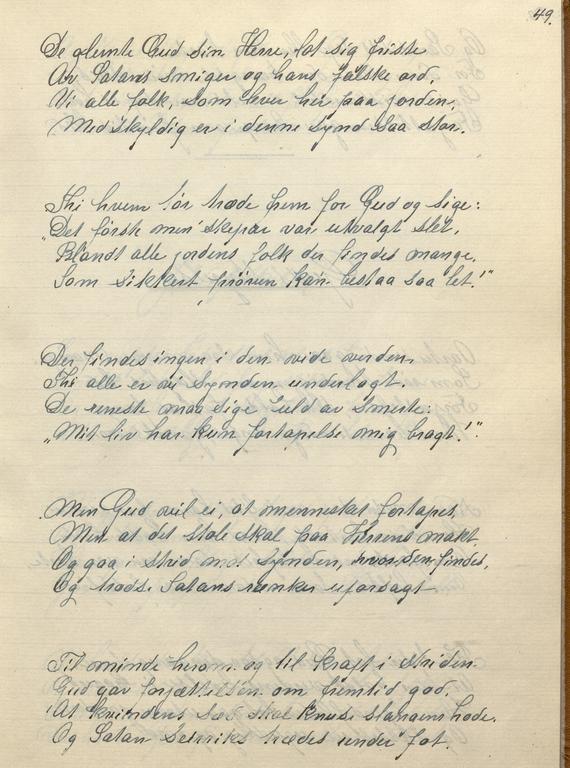 49.
De glemte Gud sin Herre, lot sig friste
Av Satans smiger og hans falske ord,
Vi alle folk, som lever her paa jorden,
Medskyldig er i denne synd saa stor.
Thi hvem tør træde frem for Gud og sige:
"Det første men'skepar var utvalgt slet,
Blandt alle jordens folk der findes mange,
Som sikkert prøven kan bestaa saa let!"
Der findes ingen i den vide verden,
Thi alle er vi synden underlagt.
De reneste maa sige fuld av smerte:
"Mit liv har kun fortapelse mig bragt!"
Men Gud vil ei, at mennesket fortapes,
Men at det stole skal paa Herrens makt
Og gaa i strid mot synden, hvor den findes,
Og trodse Satans rænker uforsagt
Til minde herom og til kraft i striden
Gud gav forjættelsen om fremtid god,
At kvindens sæd skal knuse slangens hode,
Og Satan trædes under fot.